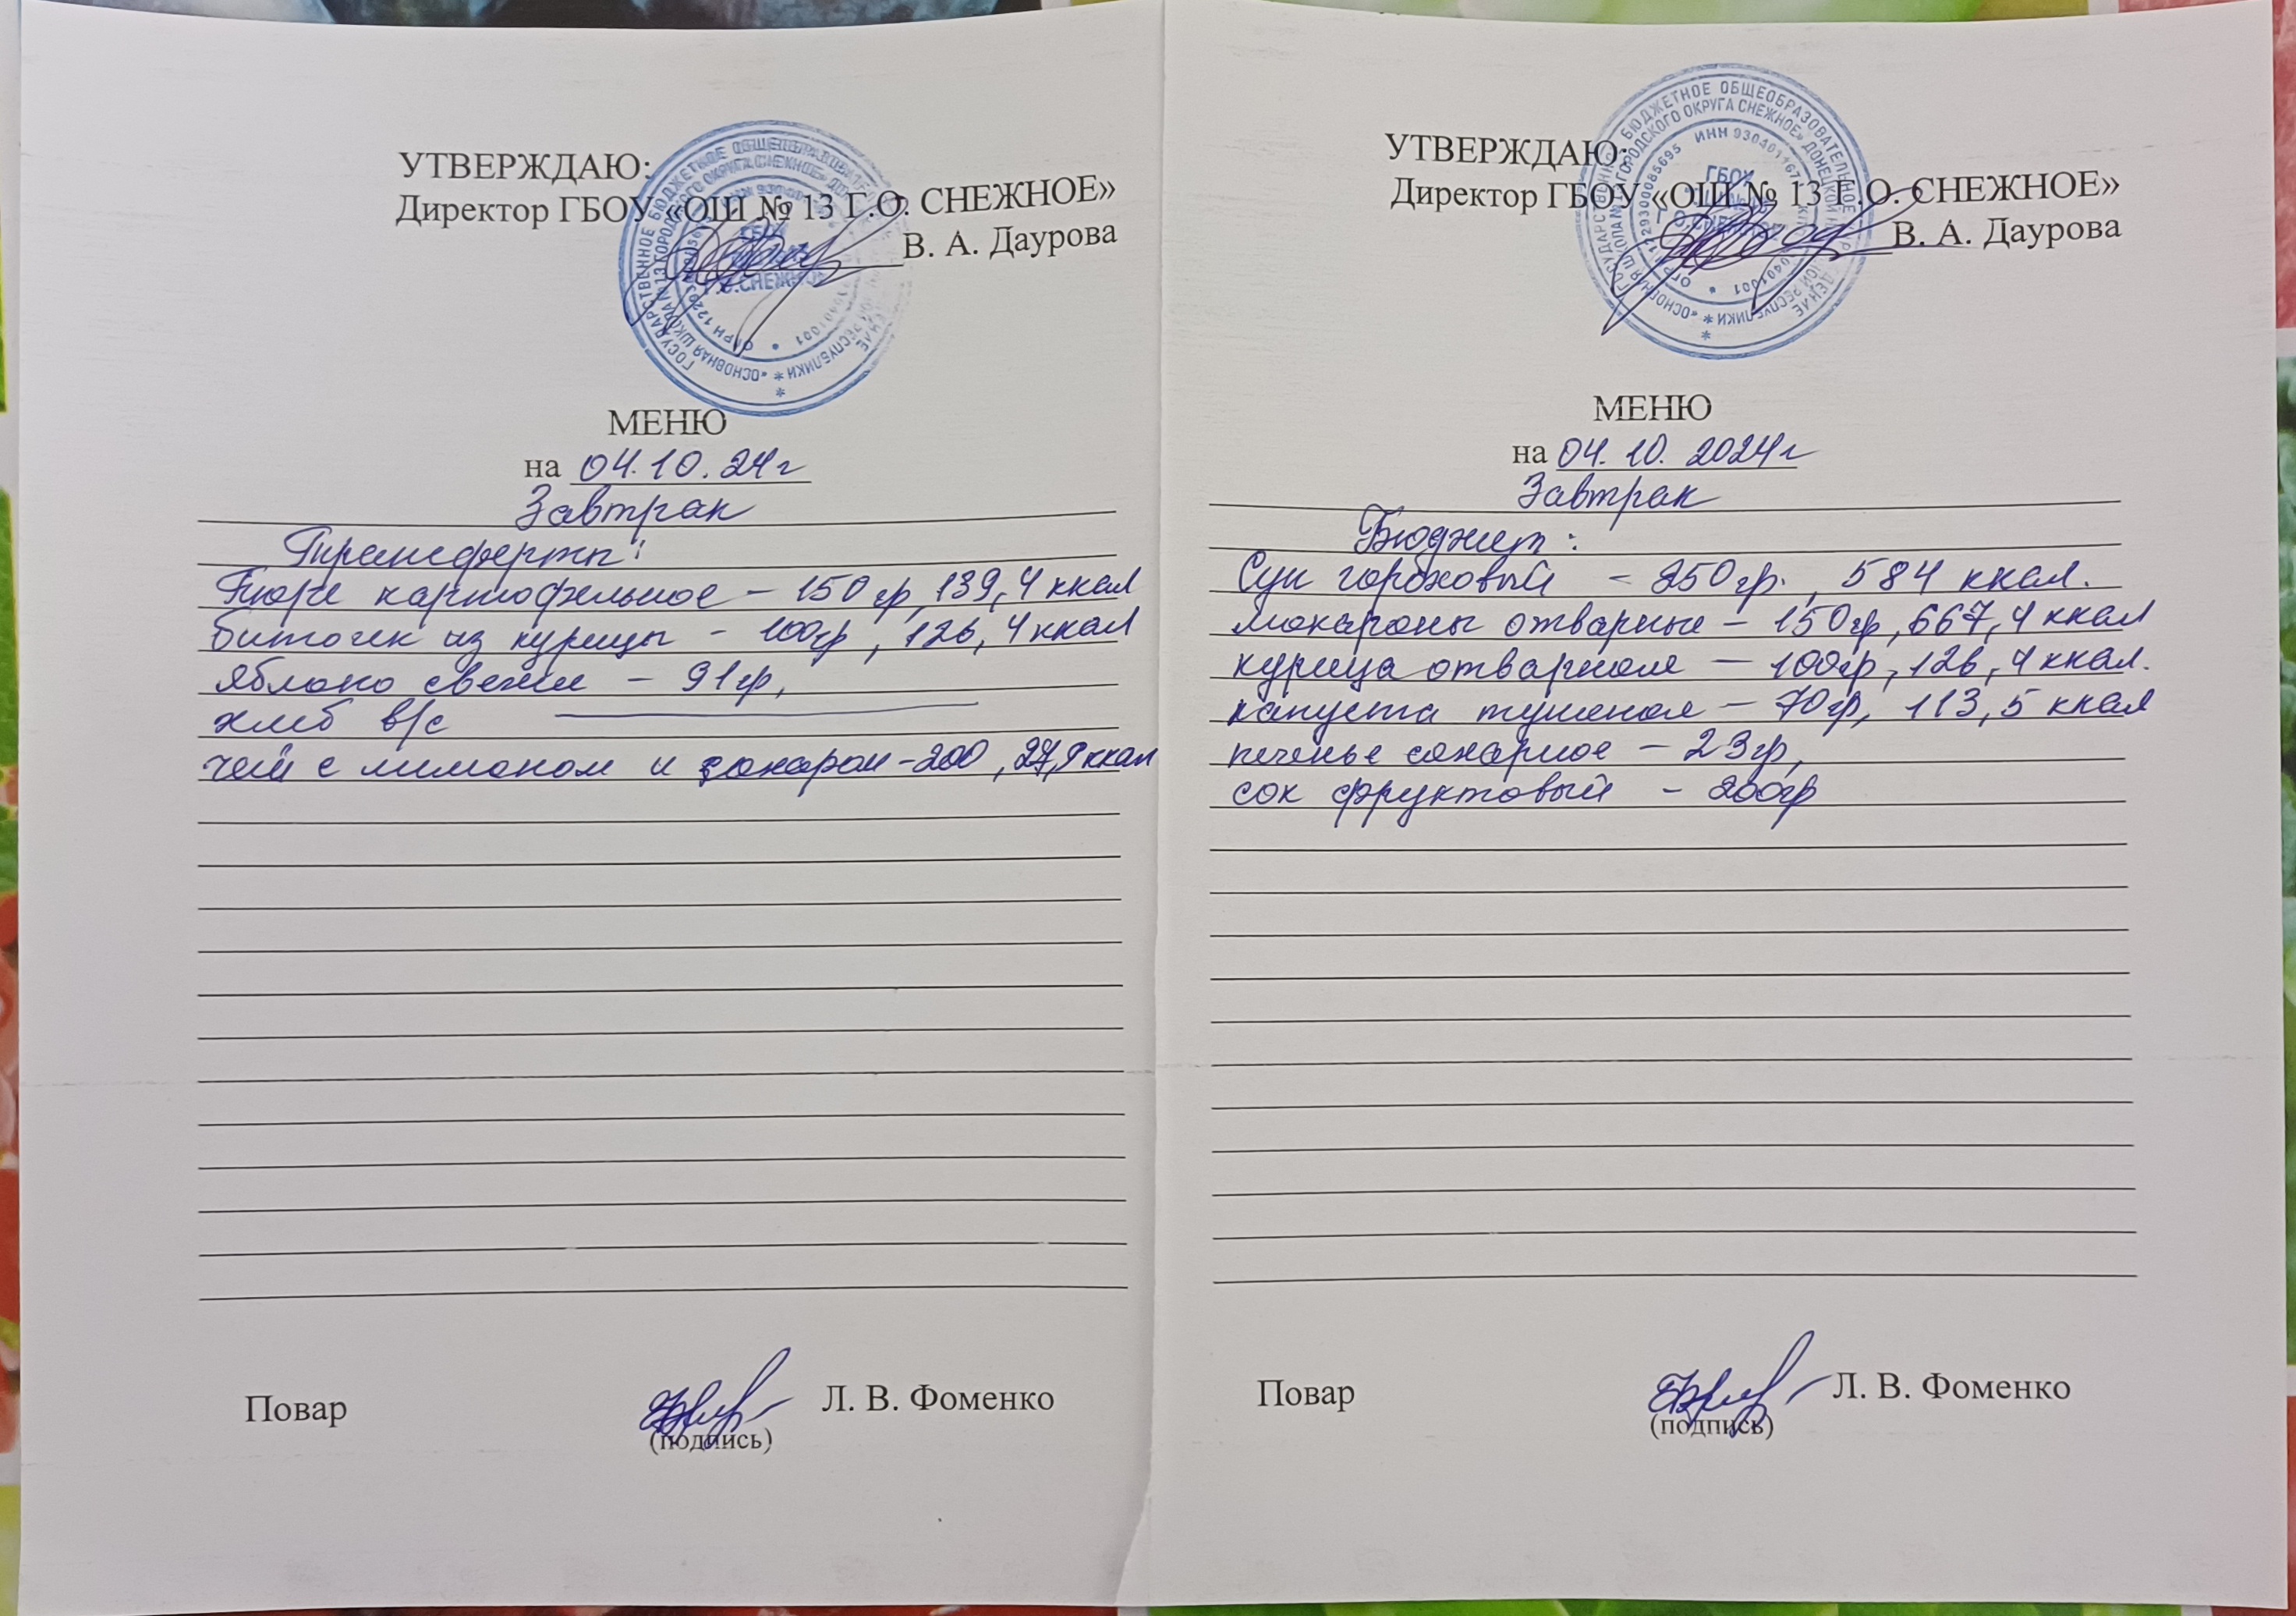 УТВЕРЖДАЮ:
Директор ГБОУ «ОШ № 13 Г.О. СНЕЖНОЕ»
В. А. Даурова
МЕНЮ
на 04.10.24г
Завтрак
Трансферты:
Пюре картофельное – 150 гр, 139,4 ккал
биточек из курицы - 100гр, 126,4 ккал
яблоко свежее – 91гр,
хлеб в/с
чай с лимоном и сахаром - 200, 27,9 ккал
Повар
Л. В. Фоменко
(подпись)
УТВЕРЖДАЮ:
Директор ГБОУ «ОШ № 13 Г.О. СНЕЖНОЕ»
В. А. Даурова
ГОСУДАРСТВЕННОЕ БЮДЖЕТНОЕ ОБЩЕОБРАЗОВАТЕЛЬНОЕ
МЕНЮ
на 04.10.2024г
Завтрак
Бюджет:
Суп гороховый – 250гр., 584 ккал.
макароны отварные – 150гр, 667,4 ккал
курица отварная — 100гр, 126,4 ккал.
капуста тушеная – 70гр, 113,5 ккал
печенье сахарное – 23гр,
сок фруктовый – 200гр
Повар
Л. В. Фоменко
(подпись)